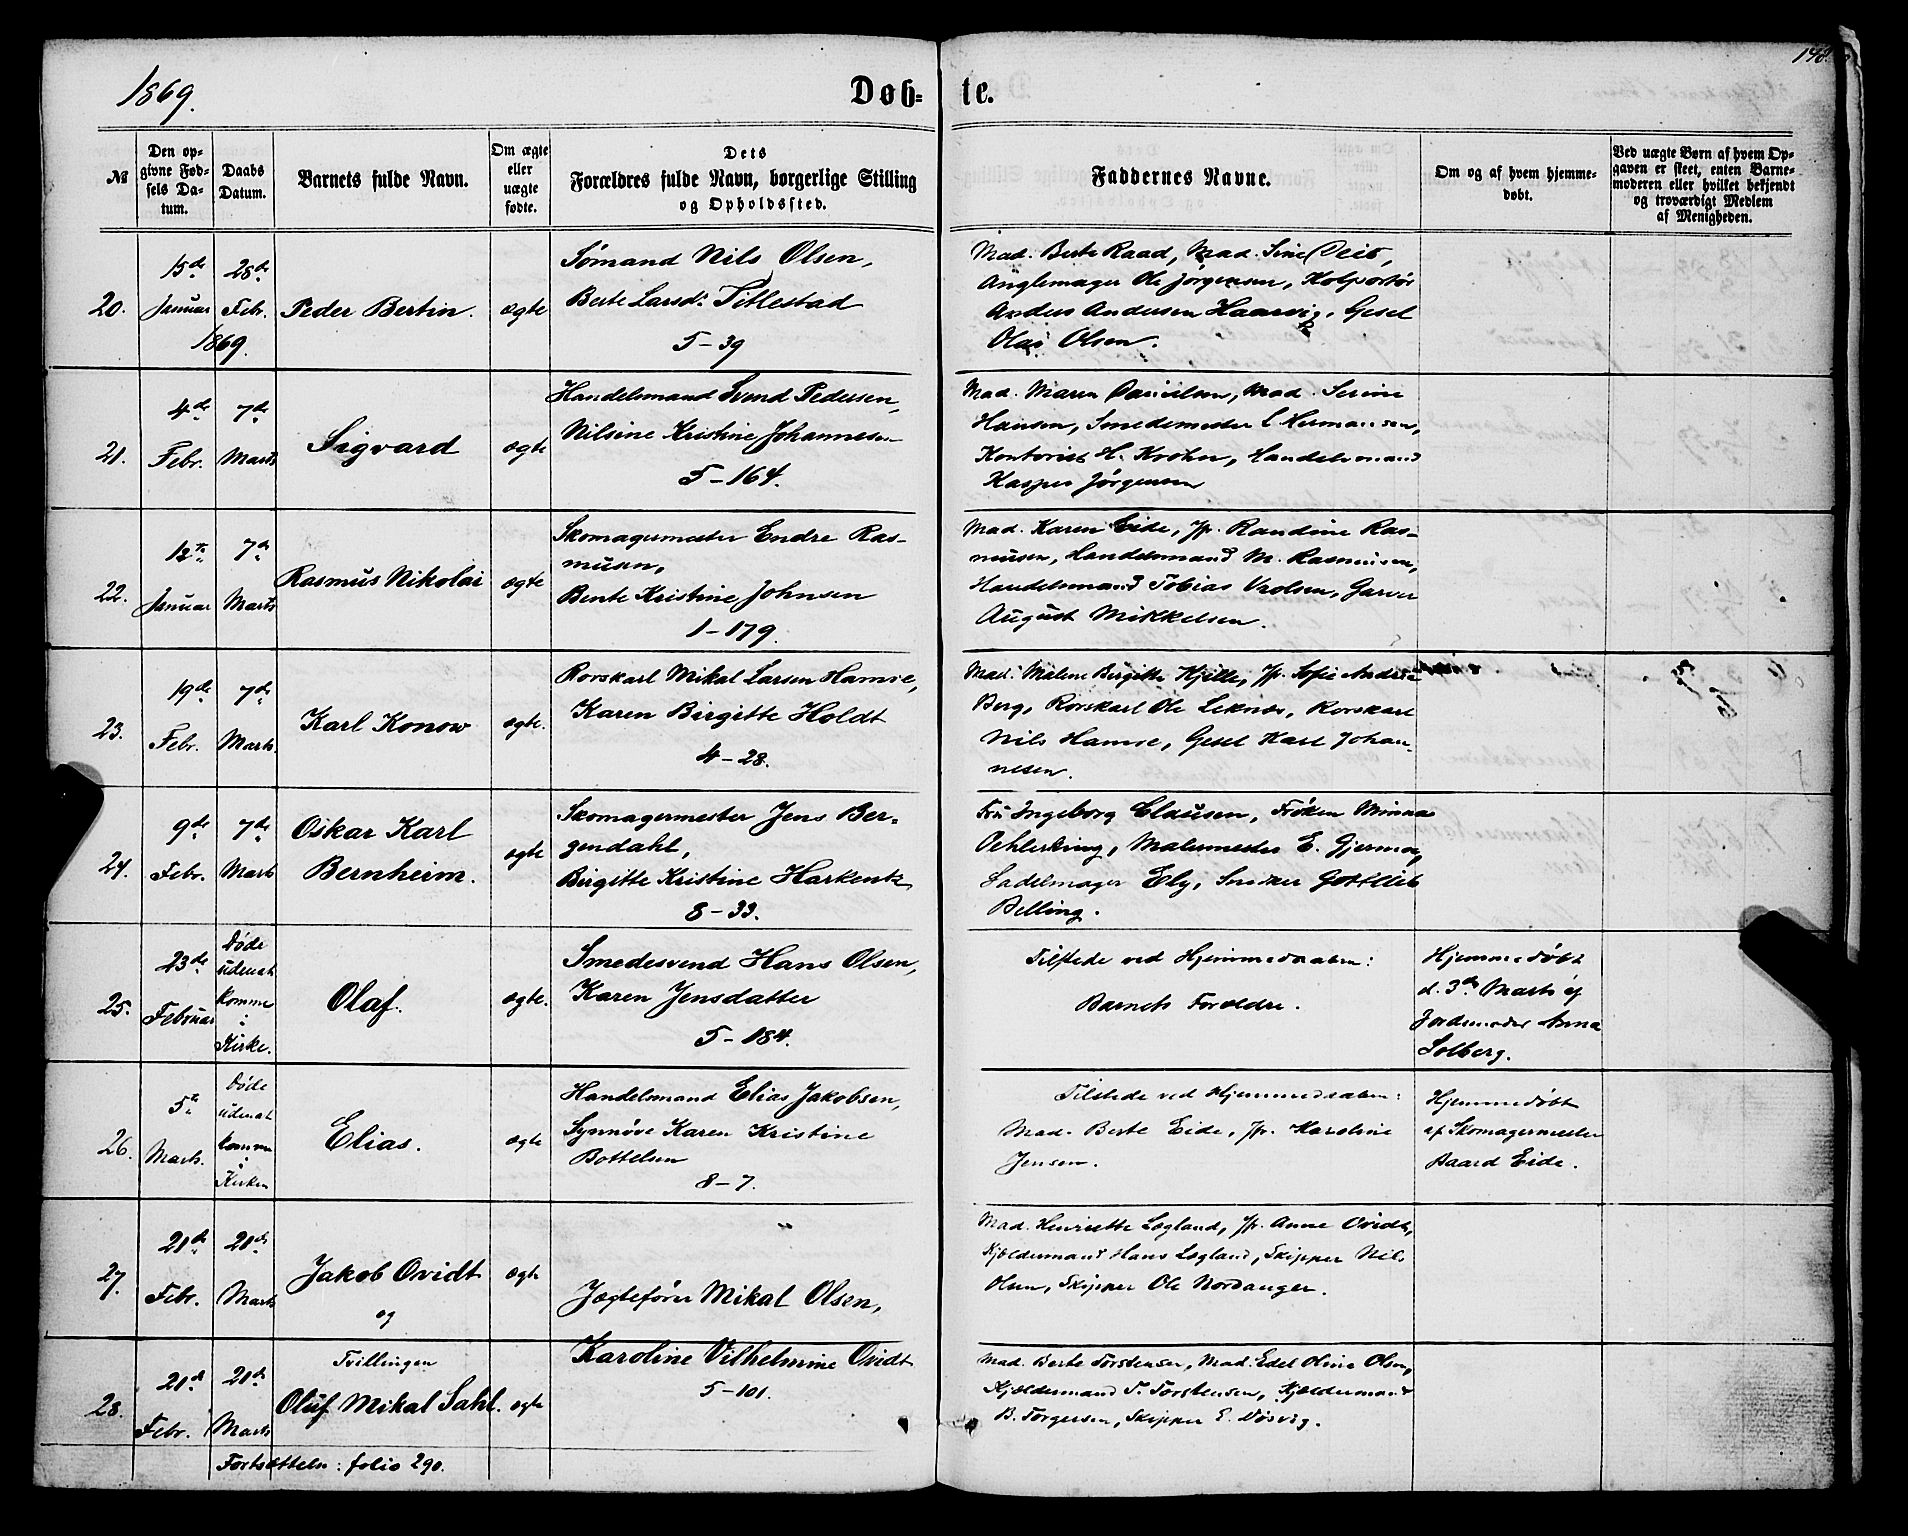 148.
1869.
Døb-
te.
№
Den op-
givne Fød-
sels Da-
tum.
Daabs
Datum.
Barnets fulde Navn.
Om ægte
eller
uægte
fødte.
Dets
Forældres fulde Navn, borgerlige Stilling
og Opholdssted.
Faddernes Navne.
Om og af hvem hjemme-
døbt.
Ved uægte Børn af hvem Op-
gaven er skeet, enten Barne-
moderen eller hvilket bekjendt
og troværdigt Medlem
af Menigheden.
20.
15de
Januar
28de
Febr.
1869.
Peder Bertin.
ægte
Sømand Nils Olsen,
Berte Larsd: Titlestad
5-39
Mad. Berte Raad, Mad. Sine
Anglemager Ole Jørgensen, Kolportør
Anders Andersen Haarvig, Gesel
Olai Olsen.
21.
4de
Febr.
7de
Marts
Sigvard
ægte
Handelsmand Svend Pedersen,
Nilsine Kristine Johannesen
5-164.
Mad. Maren Danielsen, Mad. Serine
Hansen, Smedemester C Hermansen,
Kontorist H. Krohn, Handelsmand
Kasper Jørgensen
22.
12te
Januar
7de
Marts
Rasmus Nikolai
ægte
Skomagermester Endre Ras-
musen,
Bente Kristine Johnsen
1-179.
Mad. Karen Eide, Jfr. Randine Ras-
musen, Handelsmand M. Rasmusen,
Handelsmand Tobias Garver
August Mikkelsen.
23.
19de
Febr.
7de
Marts.
Karl Konow
ægte.
Rorskarl Mikal Larsen Hamre,
Karen Birgitte Holdt
4-28.
Mad. Malene Birgitte Hjelle, Jfr. Sofie Andrea
Berg, Rorskarl Ole Leknæs, Rorskarl
Nils Hamre, Gesel Karl Johan-
nesen.
24.
9de
Febr.
7de
Marts
Oskar Karl
Bernheim.
ægte
Skomagermester Jens Ber-
gendahl,
Birgitte Kristine Harkentz
8-33.
Fru Ingeborg Clausen, Frøken Minna
Oehlerking, Malermester E. Gjermoe,
Sadelmager Ely, Snedker Gottlieb
Belling.
25.
23de
Februar
Døde
uden at
komme
i
Kirke.
Olaf.
ægte.
Smedesvend Hans Olsen,
Karen Jensdatter
5-184.
Tilstede ved Hjemmedaaben:
Barnets Forældre.
Hjemmedøbt
d. 3de Marts af
Jordemoder Anna
Solberg.
26.
5te
Marts.
Døde
uden at
komme
i
Kirken
Elias.
ægte
Handelsmand Elias Jakobsen,
Synnøve Karen Kristine
Bottelsen
8-7.
Tilstede ved Hjemmedaaben:
Mad. Berte Eide, Jfr. Karoline
Jensen.
Hjemmedøbt
af Skomagermester
Baard Eide.
27.
21de
Febr.
21de
Marts
Jakob Ovidt
og
ægte
Jægtefører Mikal Olsen,
Mad. Henriette Løgland, Jfr. Anne Ovidt,
Kjældermand Hans Løgland, Skipper Nils
Olsen, Skipper Ole Nordanger.
28.
21de
Febr.
21de
Marts
Tvillingen
Oluf Mikal Sahl.
ægte
Karoline Vilhelmine Ovidt
5-101.
Mad. Berte Torstensen, Mad. Edel Oline Olsen,
Kjældermand T. Torstensen, Kjældermand
B. Torgersen, Skipper E. Døsvig.
Fortsættelse: folio 290.